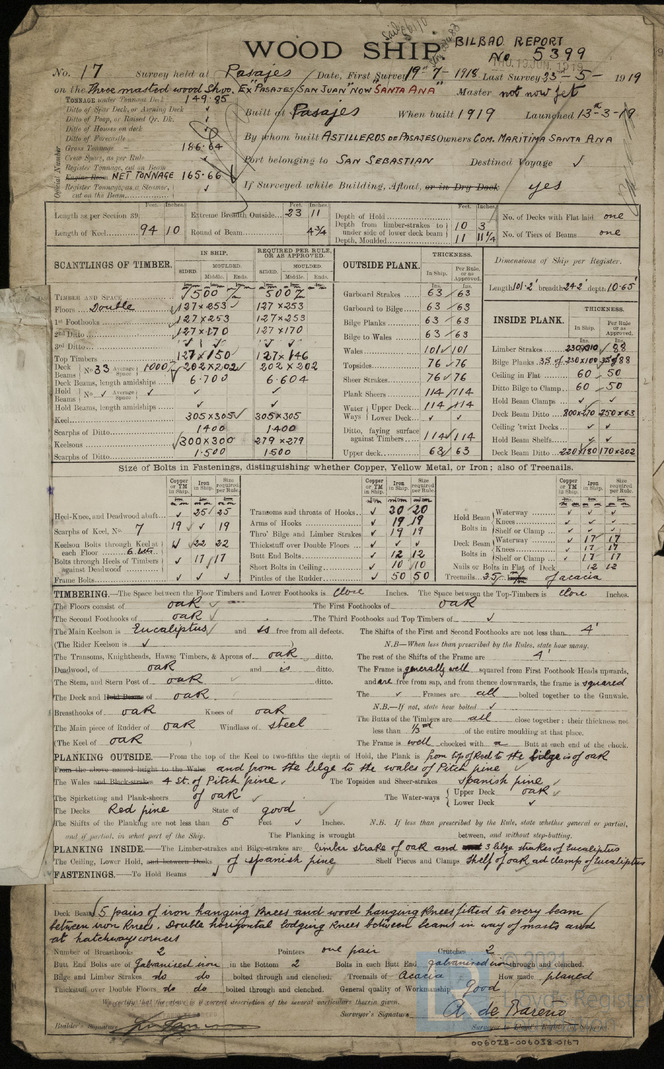 WOOD SHIP
BILBAO REPORT
No. 5399
No. 17 Survey held at Pasajes Date, First Survey 19-7-1918 Last Survey 23-5-1919
on the Three masted wood Shnr. Ex "PASAJES SAN JUAN" NOW "SANTA ANA" Master not now yet
TONNAGE under Tonnage Deck 149.85
Ditto of Spar Deck, or Awning Deck
Ditto of Poop, or Raised Qr. Dk.
Ditto of Houses on deck
Ditto of Forecastle
Gross Tonnage 186.64
Crew Space, as per Rule
Register Tonnage, cut on Beam
NET TONNAGE 165-66
Register Tonnage, as a Steamer, cut on the Beam
Official Number
Built at Pasajes When built 1919 Launched 13-3-19
By whom built ASTILLEROS DE PASAJES Owners COM. MARITIMA SANTA ANA
Port belonging to SAN SEBASTIAN Destined Voyage ✓
If Surveyed while Building, Afloat, or in Dry Dock yes
Length as per Section 39
Length of Keel 94 10
Extreme Breadth Outside 23 11
Round of Beam 4¾
Depth of Hold
Depth from limber-strakes to under side of lower deck beam 10 3
Depth, Moulded 11 11¼
No. of Decks with Flat laid one
No. of Tiers of Beams one
SCANTLINGS OF TIMBER.
IN SHIP. REQUIRED PER RULE, OR AS APPROVED.
SIDED. MOULDED. Middle. Ends. SIDED. MOULDED. Middle. Ends.
TIMBER AND SPACE 500 500
Floors Double 127 x 253 127 x 253
1st Foothooks 127 x 253 127 x 253
2nd Ditto 127 x 170 127 x 170
3rd Ditto
Top Timbers 127 x 150 127 x 146
Deck Beams No. 33 Average Space 1000 202 x 202 202 x 202
Deck Beams, length amidships 6.700 6.604
Hold Beams No. Average Space
Hold Beams, length amidships
Keel 305 x 305 305 x 305
Scarphs of Ditto 1400 1400
Keelsons 300 x 300 279 x 279
Scarphs of Ditto 1.500 1500
OUTSIDE PLANK.
THICKNESS. In Ship. Per Rule, or as Approved.
Garboard Strakes 63 63
Garboard to Bilge 63 63
Bilge Planks 63 63
Bilge to Wales 63 63
Wales 101 101
Topsides 76 76
Sheer Strakes 76 76
Plank Sheers 114 114
Water Ways Upper Deck 114 114
Lower Deck ✓ ✓
Ditto, faying surface against Timbers 114 114
Upper deck 63 63
Dimensions of Ship per Register.
Length 101.2' breadth 24.2' depth 10.65'
INSIDE PLANK.
THICKNESS. In Ship. Per Rule or as Approved.
Limber Strakes
Bilge Planks
Ceiling in Flat 60 50
Ditto Bilge to Clamp 60 50
Hold Beam Clamps ✓ ✓
Deck Beam Ditto 250 x 63
Ceiling 'twixt Decks
Hold Beam Shelfs ✓ ✓
Deck Beam Ditto 220 x 180 170 x 202
Size of Bolts in Fastenings, distinguishing whether Copper, Yellow Metal, or Iron; also of Treenails.
Copper or YM in Ship. Iron in Ship. Size required per Rule.
Heel-Knee, and Deadwood abaft ✓ 25 25
Scarphs of Keel, No. 7 19 ✓ 19
Keelson Bolts through Keel at each Floor ✓ 22 22
Bolts through Heels of Timbers against Deadwood ✓ 17 17
Frame Bolts ✓ ✓ ✓
Transoms and throats of Hooks ✓ 20 20
Arms of Hooks ✓ 19 19
Thro' Bilge and Limber Strakes ✓ 19 19
Thickstuff over Double Floors ✓ ✓ ✓
Butt End Bolts ✓ 12 12
Short Bolts in Ceiling ✓ 10 10
Pintles of the Rudder ✓ 50 50
Hold Beam Bolts in Waterway ✓ ✓ ✓
Knees ✓ ✓ ✓
Shelf or Clamp ✓ ✓ ✓
Deck Beam Bolts in Waterway ✓ 17 17
Knees ✓ 17 17
Shelf or Clamp ✓ 17 17
Nails or Bolts in Flat of Deck 12 12
Treenails 35 of acacia
TIMBERING.—The Space between the Floor Timbers and Lower Foothooks is close Inches. The Space between the Top-Timbers is close Inches.
The Floors consist of oak The First Foothooks of oak
The Second Foothooks of oak The Third Foothooks and Top Timbers of ✓
The Main Keelson is Eucaliptus and is free from all defects. The Shifts of the First and Second Foothooks are not less than 4'
(The Rider Keelson is ✓ N.B.—When less than prescribed by the Rules, state how many.
The Transoms, Knightheads, Hawse Timbers, & Aprons of oak ditto. The rest of the Shifts of the Frame are 4'
Deadwood, of oak and is ditto. The Frame is generally well squared from First Foothook Heads upwards,
The Stem, and Stern Post of oak ditto. and are free from sap, and from thence downwards, the frame is squared
The Deck and Hold Beams of oak. The ✓ Frames are all bolted together to the Gunwale.
N.B.—If not, state how bolted ✓
Breasthooks of oak Knees of oak The Butts of the Timbers are all close together; their thickness not
The main piece of Rudder of oak Windlass of steel less than 1/3rd of the entire moulding at that place.
(The Keel of oak The Frame is well chocked with a Butt at each end of the chock.
PLANKING OUTSIDE.—From the top of the Keel to two-fifths the depth of Hold, the Plank is from top of Keel to the bilge is of oak
From the above named height to the Wales and from the bilge to the wales of Pitch pine
The Wales and Black-strakes 4 St. of Pitch pine The Topsides and Sheer-strakes spanish pine
The Spirketting and Plank-sheers of oak The Water-ways Upper Deck oak
Lower Deck ✓
The Decks Red pine State of good
The Shifts of the Planking are not less than 5 Feet ✓ Inches. N.B. If less than prescribed by the Rule, state whether general or partial,
and if partial, in what part of the Ship. The Planking is wrought between, and without step-butting.
PLANKING INSIDE.—The Limber-strakes and Bilge-strakes are limber strake of oak and 3 bilge strakes of Eucaliptus
The Ceiling, Lower Hold, and between Decks of spanish pine Shelf Pieces and Clamps Shelf of oak ad clamp of Eucaliptus
FASTENINGS.—To Hold Beams ✓
Deck Beams 5 pairs of iron hanging Knees and wood hanging Knees fitted to every beam
between iron Knees. Double horizontal lodging Knees between beams in way of masts and
at hatchway corners
Number of Breasthooks 2 Pointers one pair Crutches 2
Butt End Bolts are of Galvanised iron in the Bottom 2 Bolts in each Butt End galvanised iron through and clenched.
Bilge and Limber Strakes do do bolted through and clenched. Treenails of Acacia How made planed
Thickstuff over Double Floors do do bolted through and clenched. General quality of Workmanship Good
We certify that the above is a correct description of the several particulars therein given.
Builder's Signature
Surveyor's Signature A. de Bareno
Surveyor to Lloyd's Register
Lloyd's Register
006028-006038-0167